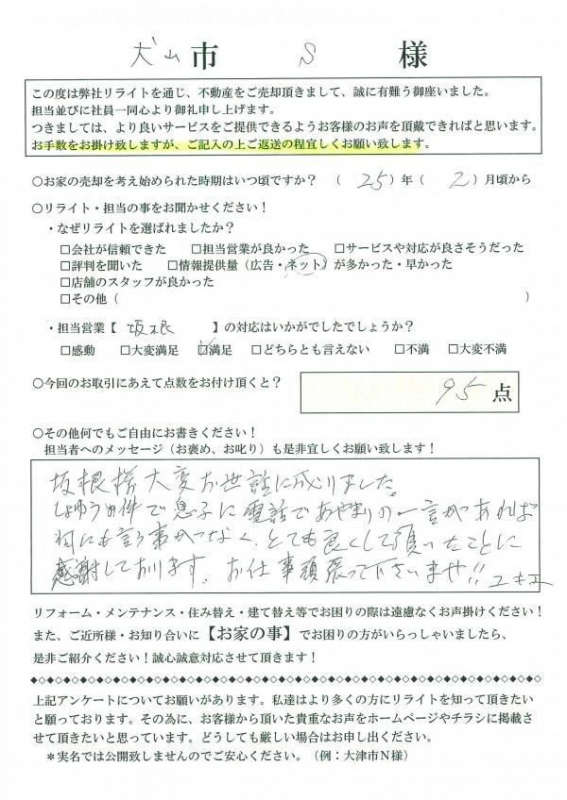 犬山市 S 様
この度は弊社リライトを通じ、不動産をご売却頂きまして、誠に有難う御座いました。
担当並びに社員一同心より御礼申し上げます。
つきましては、より良いサービスをご提供できるようお客様のお声を頂戴できればと思います。
お手数をお掛け致しますが、ご記入の上ご返送の程宜しくお願い致します。
○お家の売却を考え始められた時期はいつ頃ですか？ （ 25 ）年（ 2 ）月頃から
○リライト・担当の事をお聞かせください！
・なぜリライトを選ばれましたか？
□会社が信頼できた □担当営業が良かった □サービスや対応が良さそうだった
□評判を聞いた □情報提供量（広告・ネット）が多かった・早かった
□店舗のスタッフが良かった
□その他（ ）
・担当営業【 坂根 】の対応はいかがでしたでしょうか？
□感動 □大変満足 ☑満足 □どちらとも言えない □不満 □大変不満
○今回のお取引にあえて点数をお付け頂くと？ 95 点
○その他何でもご自由にお書きください！
担当者へのメッセージ（お褒め、お叱り）も是非宜しくお願い致します！
坂根様大変お世話に成りました。
しょゆうの件で息子に電話であやまりの一言があれば
何にも言う事がなく、とても良くして頂いたことに
感謝しております。お仕事頑張って下さいませ!!
リフォーム・メンテナンス・住み替え・建て替え等でお困りの際は遠慮なくお声掛けください！
また、ご近所様・お知り合いに【お家の事】でお困りの方がいらっしゃいましたら、
是非ご紹介ください！誠心誠意対応させて頂きます！
上記アンケートについてお願いがあります。私達はより多くの方にリライトを知って頂きたい
と願っております。その為に、お客様から頂いた貴重なお声をホームページやチラシに掲載さ
せて頂きたいと思っています。どうしても厳しい場合はお申し出ください。
＊実名では公開致しませんのでご安心ください。（例：大津市N様）